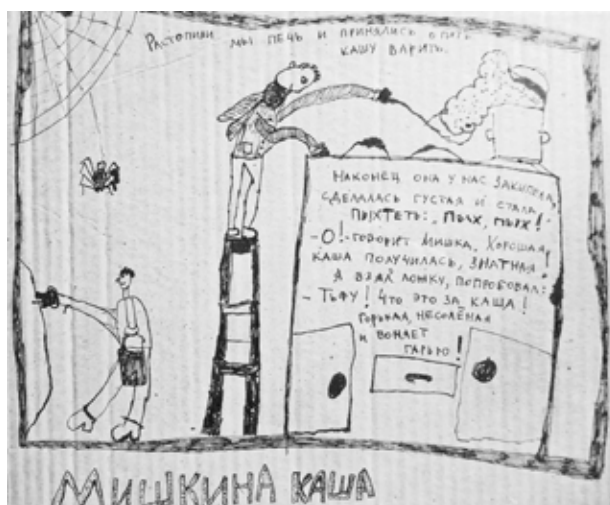 Растопили мы печь и принялись опять
кашу варить.
Наконец она у нас закипела,
сделалась густая и стала
пыхтеть: „Пых, пых!"
- О! - говорит Мишка. Хорошая
каша получилась, знатная!
Я взял ложку, попробовал:
- Тьфу! Что это за каша!
Горькая, несолёная
и воняет
гарью!
Мишкина каша